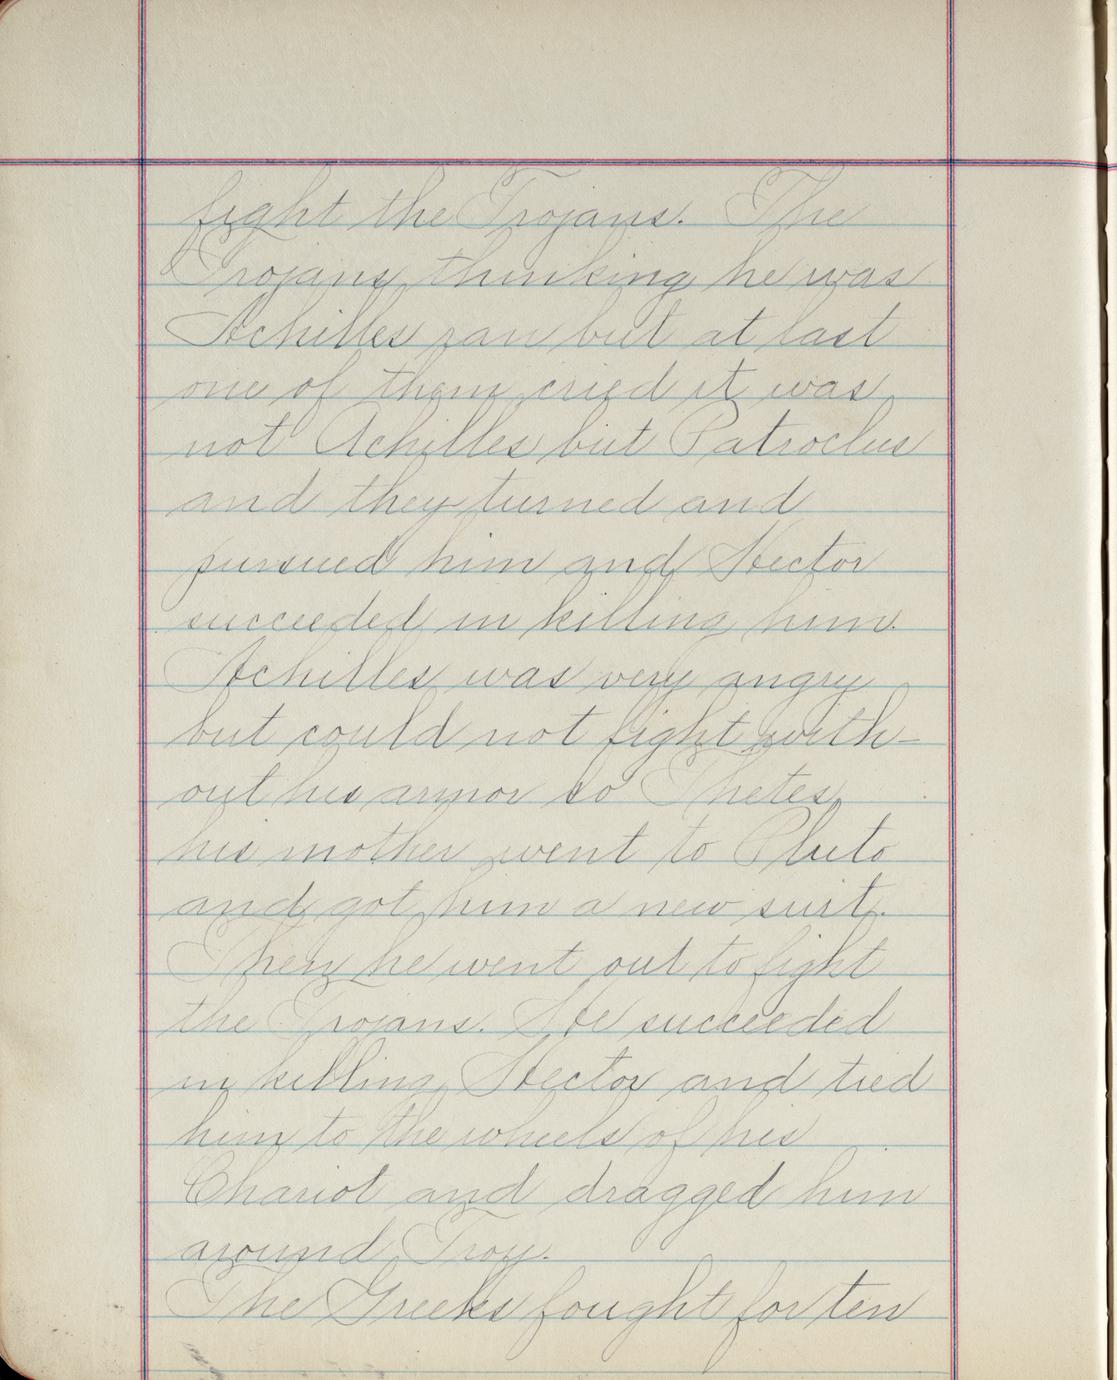 fight the Trojans. The
Trojans thinking he was
Achilles ran but at last
one of them cried it was
not Achilles but Patroclus
and they turned and
pursued him and Hector
succeeded in killing him.
Achilles was very angry
but could not fight with-
out his armor so Thetes
his mother went to Pluto
and got him a new suit.
Then he went out to fight
the Trojans. He succeeded
in killing Hector and tied
him to the wheels of his
Chariot and dragged him
around Troy.
The Greeks fought for ten